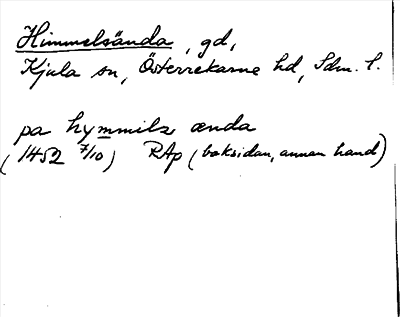 Himmelsända, gd,
Kjula sn, Österrekarne hd, Sdm. l.
pa hymmilz ænda
(1452 7/10) RAp (baksidan, annan hand)